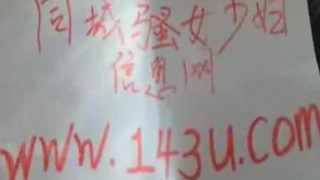 同城骚女少妇
信息网
www.143u.com